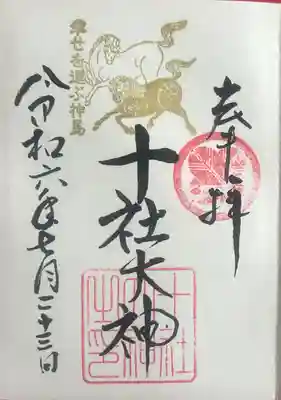 奉拝
幸せを運ぶ神馬
十社大神
十社大神之印
令和六年七月二十三日